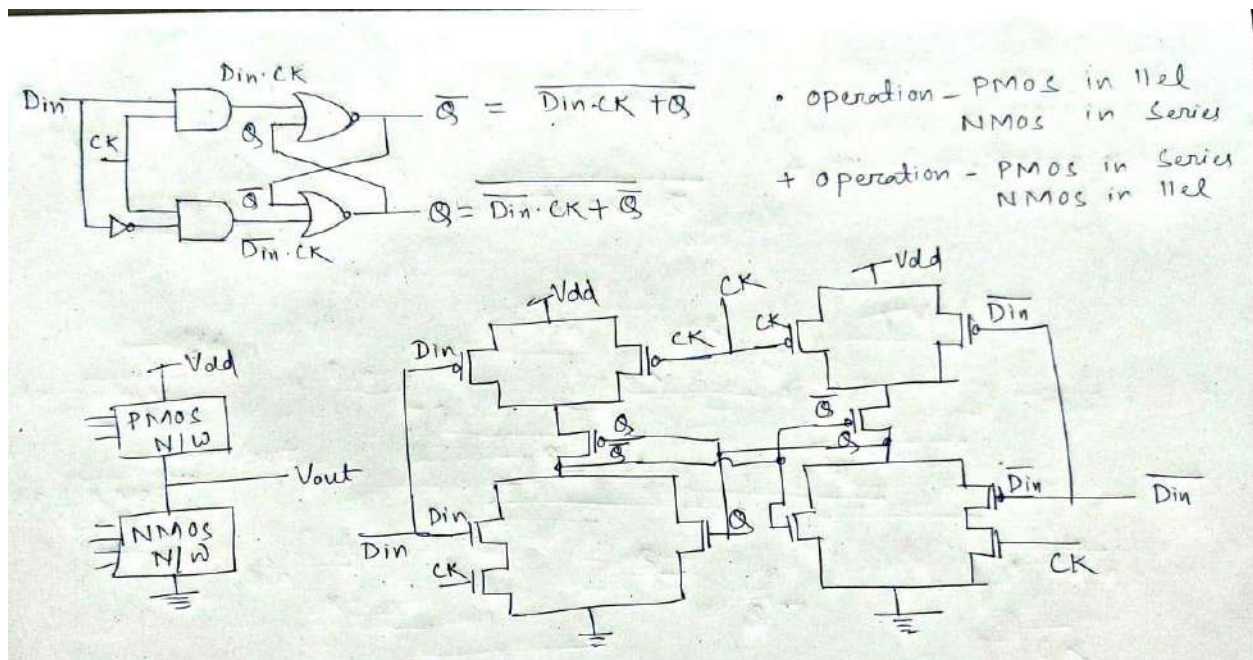 Din
Din.CK
CK
Q
Q̅
D̅i̅n̅.CK
Q̅ = \overline{Din.CK + Q}
Q = \overline{\overline{Din}.CK + \overline{Q}}
• operation - PMOS in llel
NMOS in Series
+ operation - PMOS in Series
NMOS in llel
Vdd
PMOS
N/W
Vout
NMOS
N/W
Vdd
CK
Vdd
Din
CK
CK
D̅i̅n̅
Q
Q̅
Q̅
Q
Din
Din
CK
Q
D̅i̅n̅
D̅i̅n̅
CK